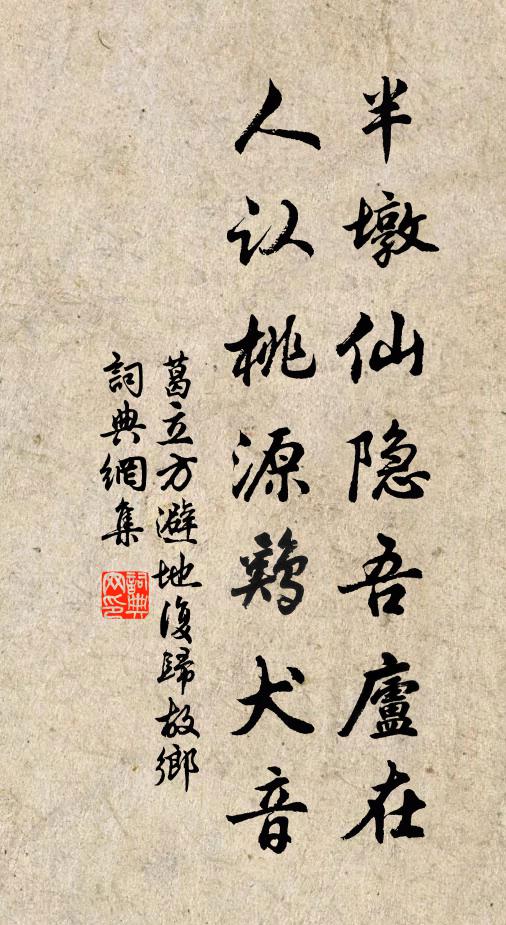 半墩仙隐吾廬在
人认桃源鷄犬音
葛立方避地復歸故鄉
詞典網集
詞典
网印